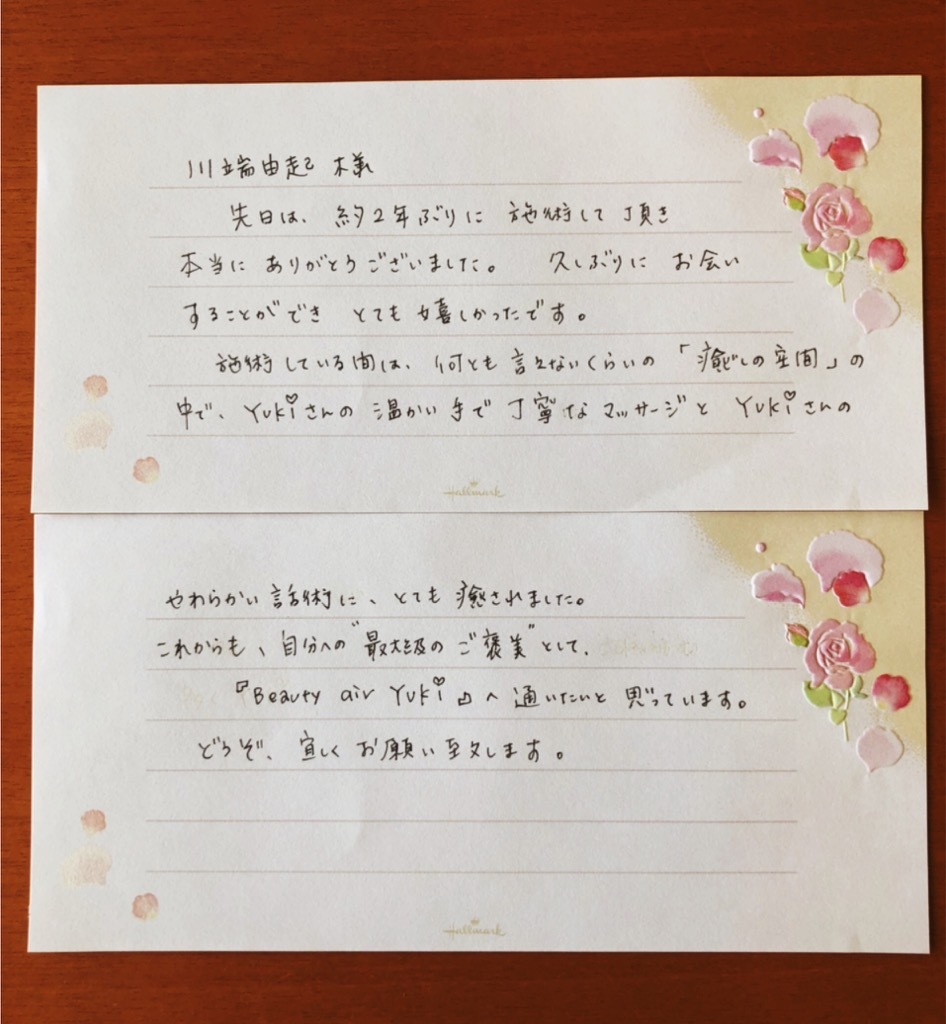 川端由起 様
先日は、約2年ぶりに 施術して頂き
本当に ありがとうございました。 久しぶりに お会い
することができ とても 嬉しかったです。
施術している間は、何とも 言えないくらいの 「癒しの空間」の
中で、Yukiさんの 温かい手で 丁寧な マッサージと Yukiさんの
Hallmark
やわらかい 話術に、とても 癒されました。
これからも、自分への"最大級の ご褒美"として、
『Beauty air Yuki』へ 通いたいと 思っています。
どうぞ、宜しく お願い 致します。
Hallmark